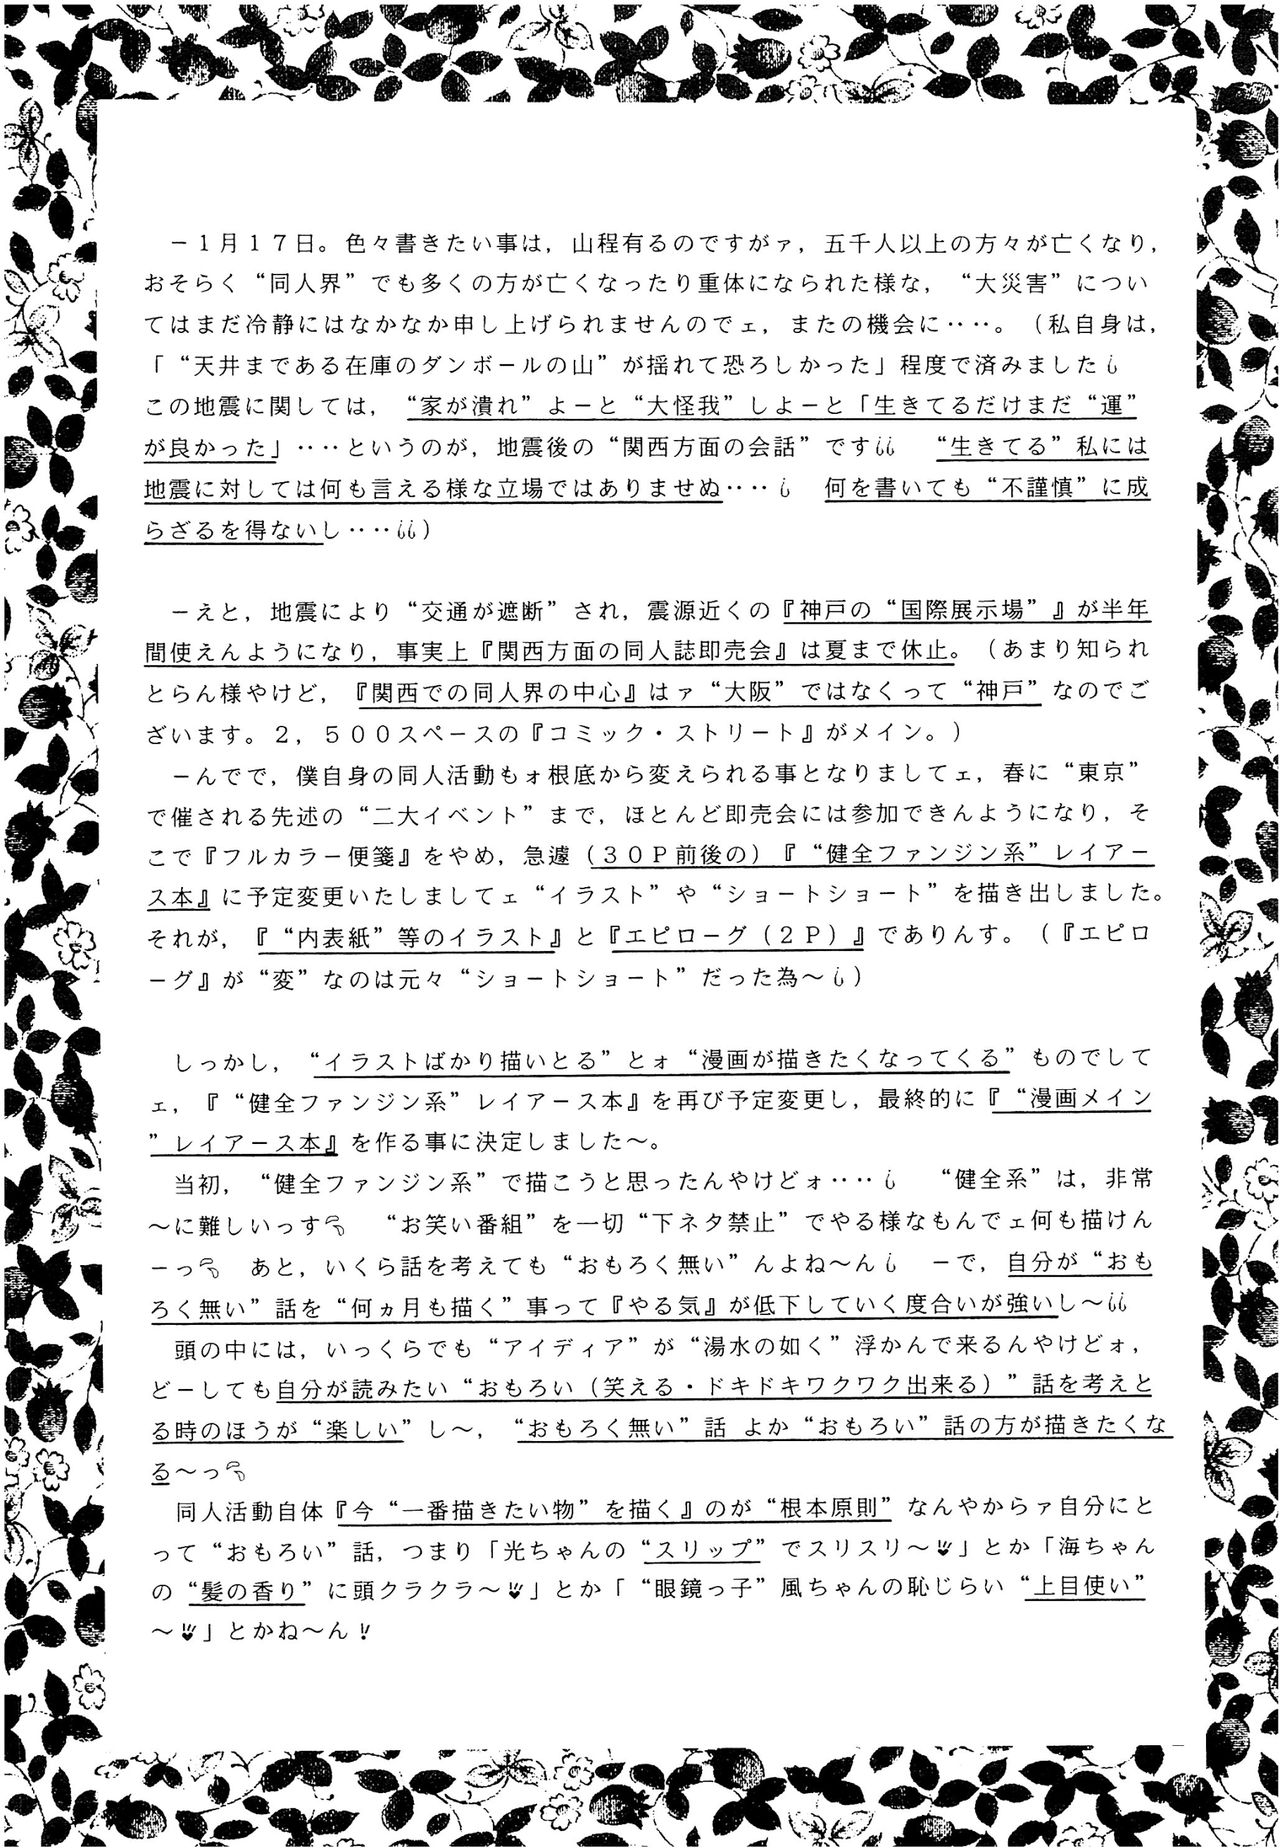 －１月１７日。色々書きたい事は，山程有るのですがァ，五千人以上の方々が亡くなり，
おそらく“同人界”でも多くの方が亡くなったり重体になられた様な，“大災害”につい
てはまだ冷静にはなかなか申し上げられませんのでェ，またの機会に‥‥。（私自身は，
「“天井まである在庫のダンボールの山”が揺れて恐ろしかった」程度で済みました
この地震に関しては，“家が潰れ”よーと“大怪我”しよーと「生きてるだけまだ“運”
が良かった」‥‥というのが，地震後の“関西方面の会話”です　“生きてる”私には
地震に対しては何も言える様な立場ではありませぬ‥‥　何を書いても“不謹慎”に成
らざるを得ないし‥‥）
－えと，地震により“交通が遮断”され，震源近くの『神戸の“国際展示場”』が半年
間使えんようになり，事実上『関西方面の同人誌即売会』は夏まで休止。（あまり知られ
とらん様やけど，『関西での同人界の中心』はァ“大阪”ではなくって“神戸”なのでご
ざいます。２，５００スペースの『コミック・ストリート』がメイン。）
－んでで，僕自身の同人活動もォ根底から変えられる事となりましてェ，春に“東京”
で催される先述の“二大イベント”まで，ほとんど即売会には参加できんようになり，そ
こで『フルカラー便箋』をやめ，急遽（３０Ｐ前後の）『“健全ファンジン系”レイアー
ス本』に予定変更いたしましてェ“イラスト”や“ショートショート”を描き出しました。
それが，『“内表紙”等のイラスト』と『エピローグ（２Ｐ）』でありんす。（『エピロ
ーグ』が“変”なのは元々“ショートショート”だった為～）
しっかし，“イラストばかり描いとる”とォ“漫画が描きたくなってくる”ものでして
ェ，『“健全ファンジン系”レイアース本』を再び予定変更し，最終的に『“漫画メイン
”レイアース本』を作る事に決定しました～。
当初，“健全ファンジン系”で描こうと思ったんやけどォ‥‥　“健全系”は，非常
～に難しいっす　“お笑い番組”を一切“下ネタ禁止”でやる様なもんでェ何も描けん
－っ　あと，いくら話を考えても“おもろく無い”んよね～ん　－で，自分が“おも
ろく無い”話を“何ヵ月も描く”事って『やる気』が低下していく度合いが強いし～
頭の中には，いっくらでも“アイディア”が“湯水の如く”浮かんで来るんやけどォ，
どーしても自分が読みたい“おもろい（笑える・ドキドキワクワク出来る）”話を考えと
る時のほうが“楽しい”し～，“おもろく無い”話 よか“おもろい”話の方が描きたくな
る～っ
同人活動自体『今“一番描きたい物”を描く』のが“根本原則”なんやからァ自分にと
って“おもろい”話，つまり「光ちゃんの“スリップ”でスリスリ～♥」とか「海ちゃん
の“髪の香り”に頭クラクラ～♥」とか「“眼鏡っ子”風ちゃんの恥じらい“上目使い”
～♥」とかね～ん！